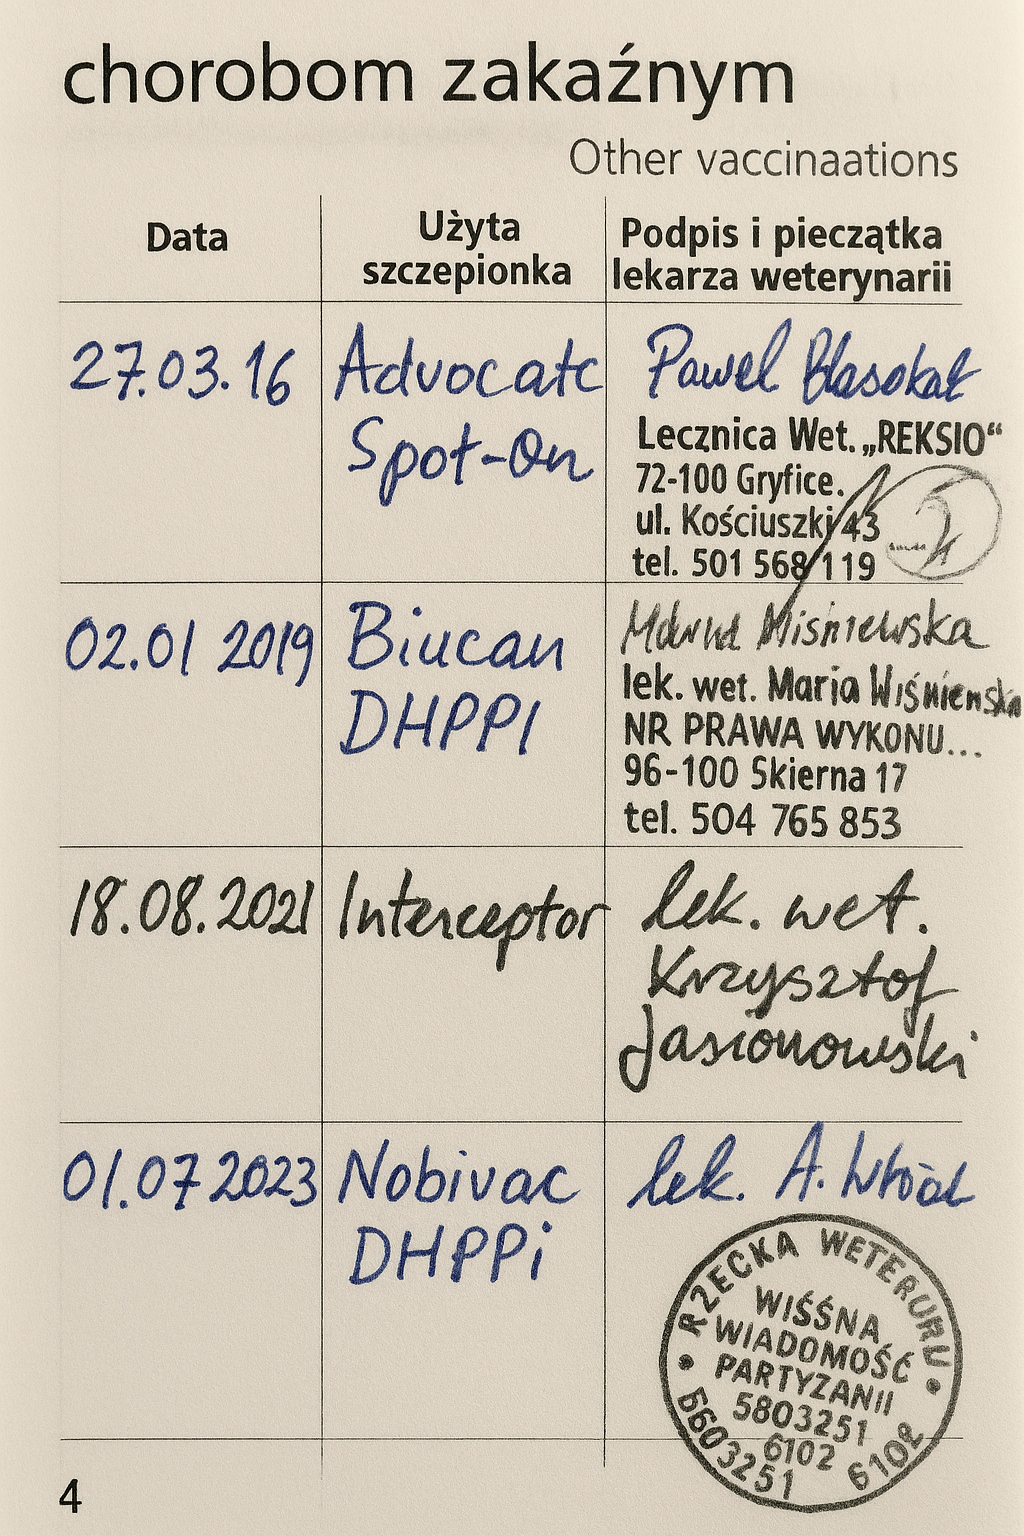 chorobom zakaźnym
Other vaccinaations
Data
Użyta
szczepionka
Podpis i pieczątka
lekarza weterynarii
27.03.16
Advocate
Spot-On
Paweł Błasokat
Lecznica Wet. „REKSIO“
72-100 Gryfice.
ul. Kościuszki 43
tel. 501 568 119
02.01 2019
Biucan
DHPPI
Miśniewska
lek. wet. Maria Wiśniewska
NR PRAWA WYKONU...
96-100 Skierna 17
tel. 504 765 853
18.08.2021
Interceptor
lek. wet.
Krzysztof
Jasionowski
01.07 2023
Nobivac
DHPPi
lek. A.
RZECKA WETERURU
WIŚŚNA
WIADOMOŚĆ
PARTYZANII
5803251
6102
5603251
6102
4